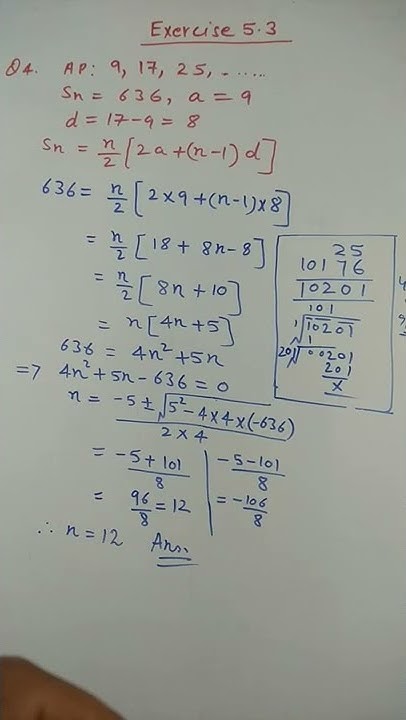 Exercise 5.3
Q4. AP: 9, 17, 25, .......
Sn = 636, a = 9
d = 17-9 = 8
Sn = n/2 [2a+(n-1) d]
636 = n/2 [2×9+(n-1)×8]
= n/2 [18 + 8n-8]
= n/2 [8n + 10]
= n[4n+5]
636 = 4n²+5n
=> 4n²+5n-636 = 0
n = -5 ± √5²-4×4×(-636) / 2×4
= -5+101/8 | -5-101/8
= 96/8 = 12 | = -106/8
∴ n = 12 Ans.
25
10176
10201
101
1√10201
1
201√00201
201
×